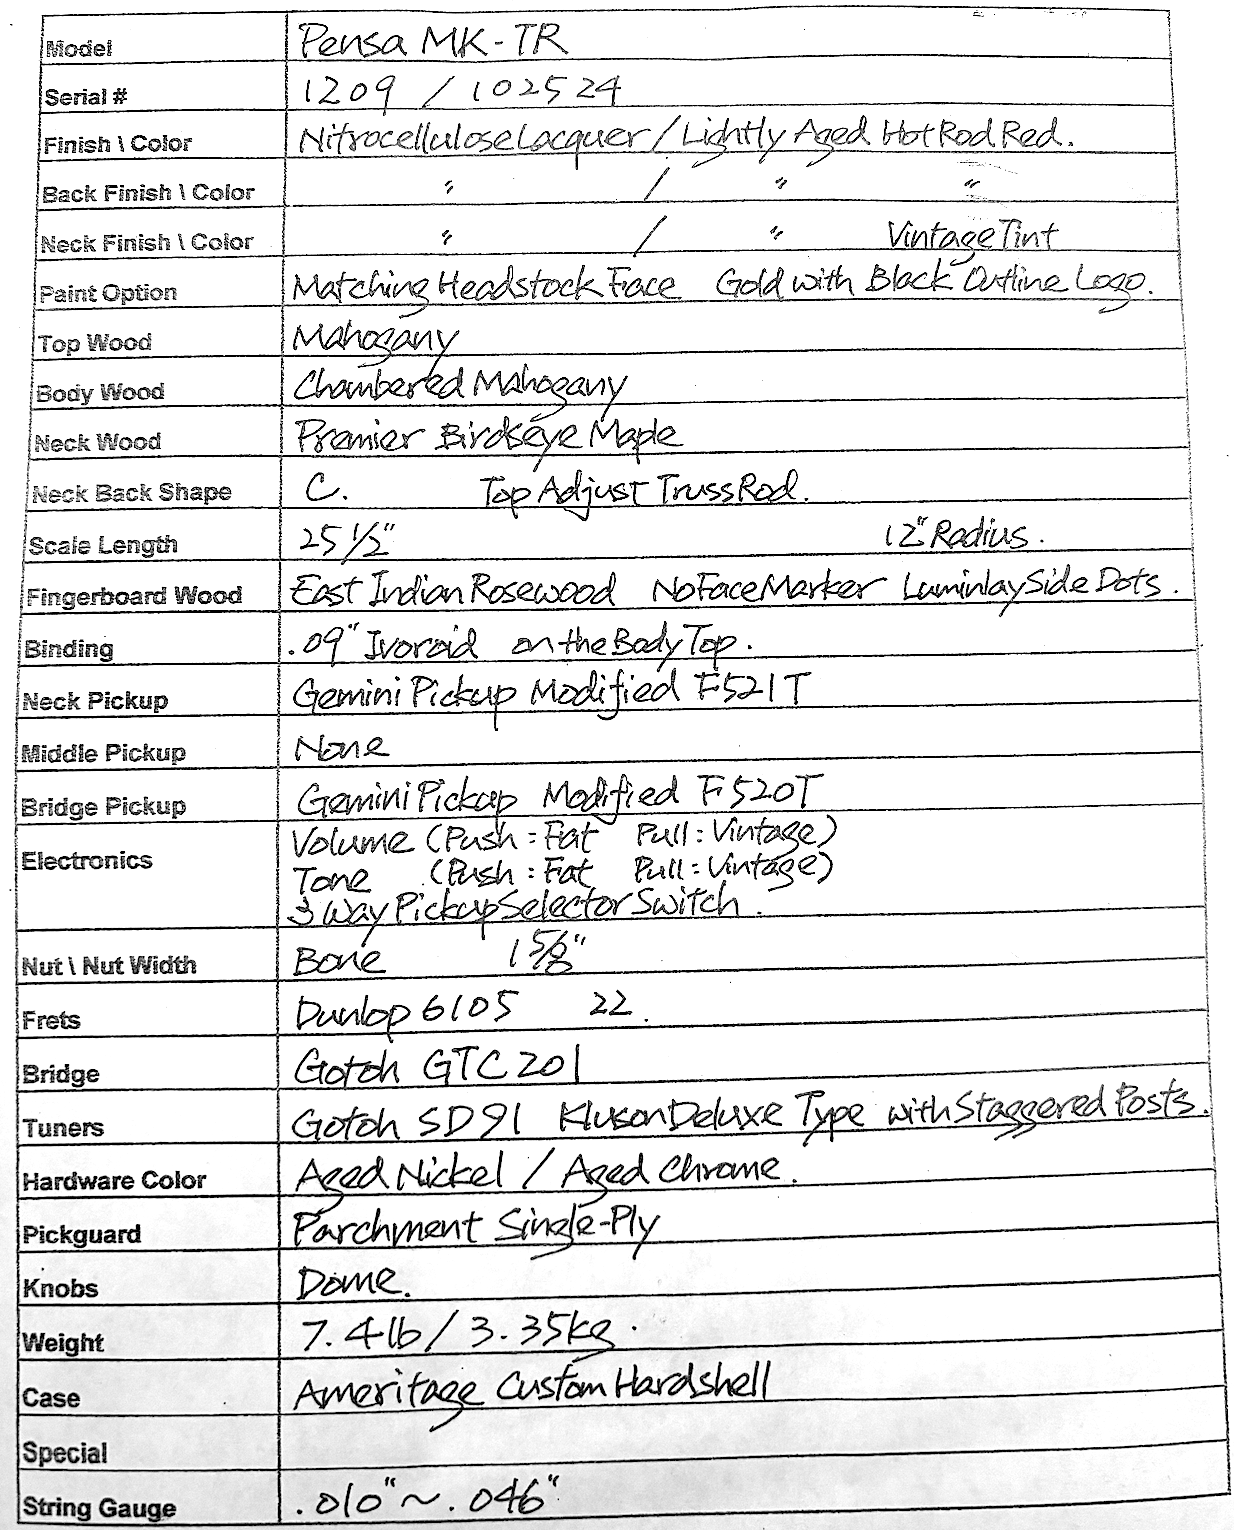 Model Pensa MK-TR
Serial # 1209 / 102524
Finish \ Color Nitrocellulose Lacquer / Lightly Aged Hot Rod Red.
Back Finish \ Color " / " "
Neck Finish \ Color " / " Vintage Tint
Paint Option Matching Headstock Face Gold with Black Outline Logo.
Top Wood Mahogany
Body Wood Chambered Mahogany
Neck Wood Premier Birdseye Maple
Neck Back Shape C. Top Adjust Truss Rod.
Scale Length 25 1/2" 12" Radius.
Fingerboard Wood East Indian Rosewood No Face Marker Luminlay Side Dots.
Binding .09" Ivoroid on the Body Top.
Neck Pickup Gemini Pickup Modified F521T
Middle Pickup None
Bridge Pickup Gemini Pickup Modified F520T
Electronics Volume (Push : Fat Pull : Vintage)
Tone (Push : Fat Pull : Vintage)
3 Way Pickup Selector Switch.
Nut \ Nut Width Bone 1 5/8"
Frets Dunlop 6105 22.
Bridge Gotoh GTC 201
Tuners Gotoh SD91 Kluson Deluxe Type with Staggered Posts.
Hardware Color Aged Nickel / Aged Chrome.
Pickguard Parchment Single-Ply
Knobs Dome.
Weight 7.4 lb / 3.35kg.
Case Ameritage Custom Hardshell
Special
String Gauge .010" ~ .046"